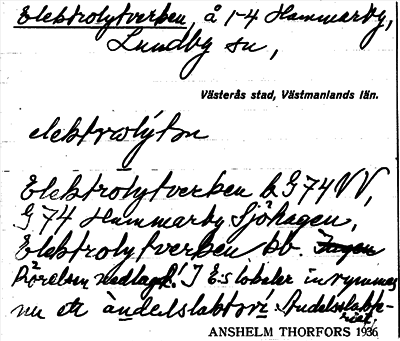 Elektrolytverken, å 1-4 Hammarby,
Lundby sn,
Västerås stad, Västmanlands län.
elektrolýtn
Elektrolytverken b G74 VV,
G74 Hammarby Sjöhagen,
Elektrolytverken bb.
Rörelsen nedlagd! I E:s lokaler inrymmes
nu ett àndelslaktori. Andelsslakte-
riet.
ANSHELM THORFORS 1936